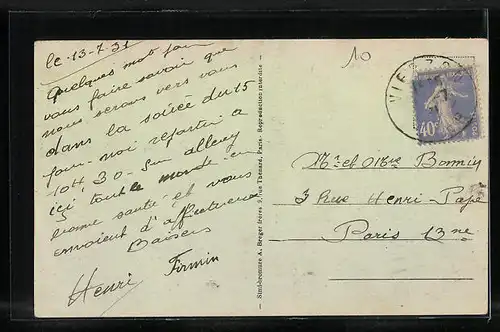 le 13-7-31
quelques mot pour
vous faire savoir que
nous serons vers vous
dans la soirée du 15
pour moi repartir a
10H.30. Sur
ici tout le monde en
bonne santé et vous
envoient d'affectueux
Baisers
Henri Firmin
— Simi-bromure A. Breger frères 9, rue Thénard, Paris - Reproduction interdite —
10
VIERZO
40c
Mr et Mme Bonnin
3 Rue Henri-Pape
Paris 13me